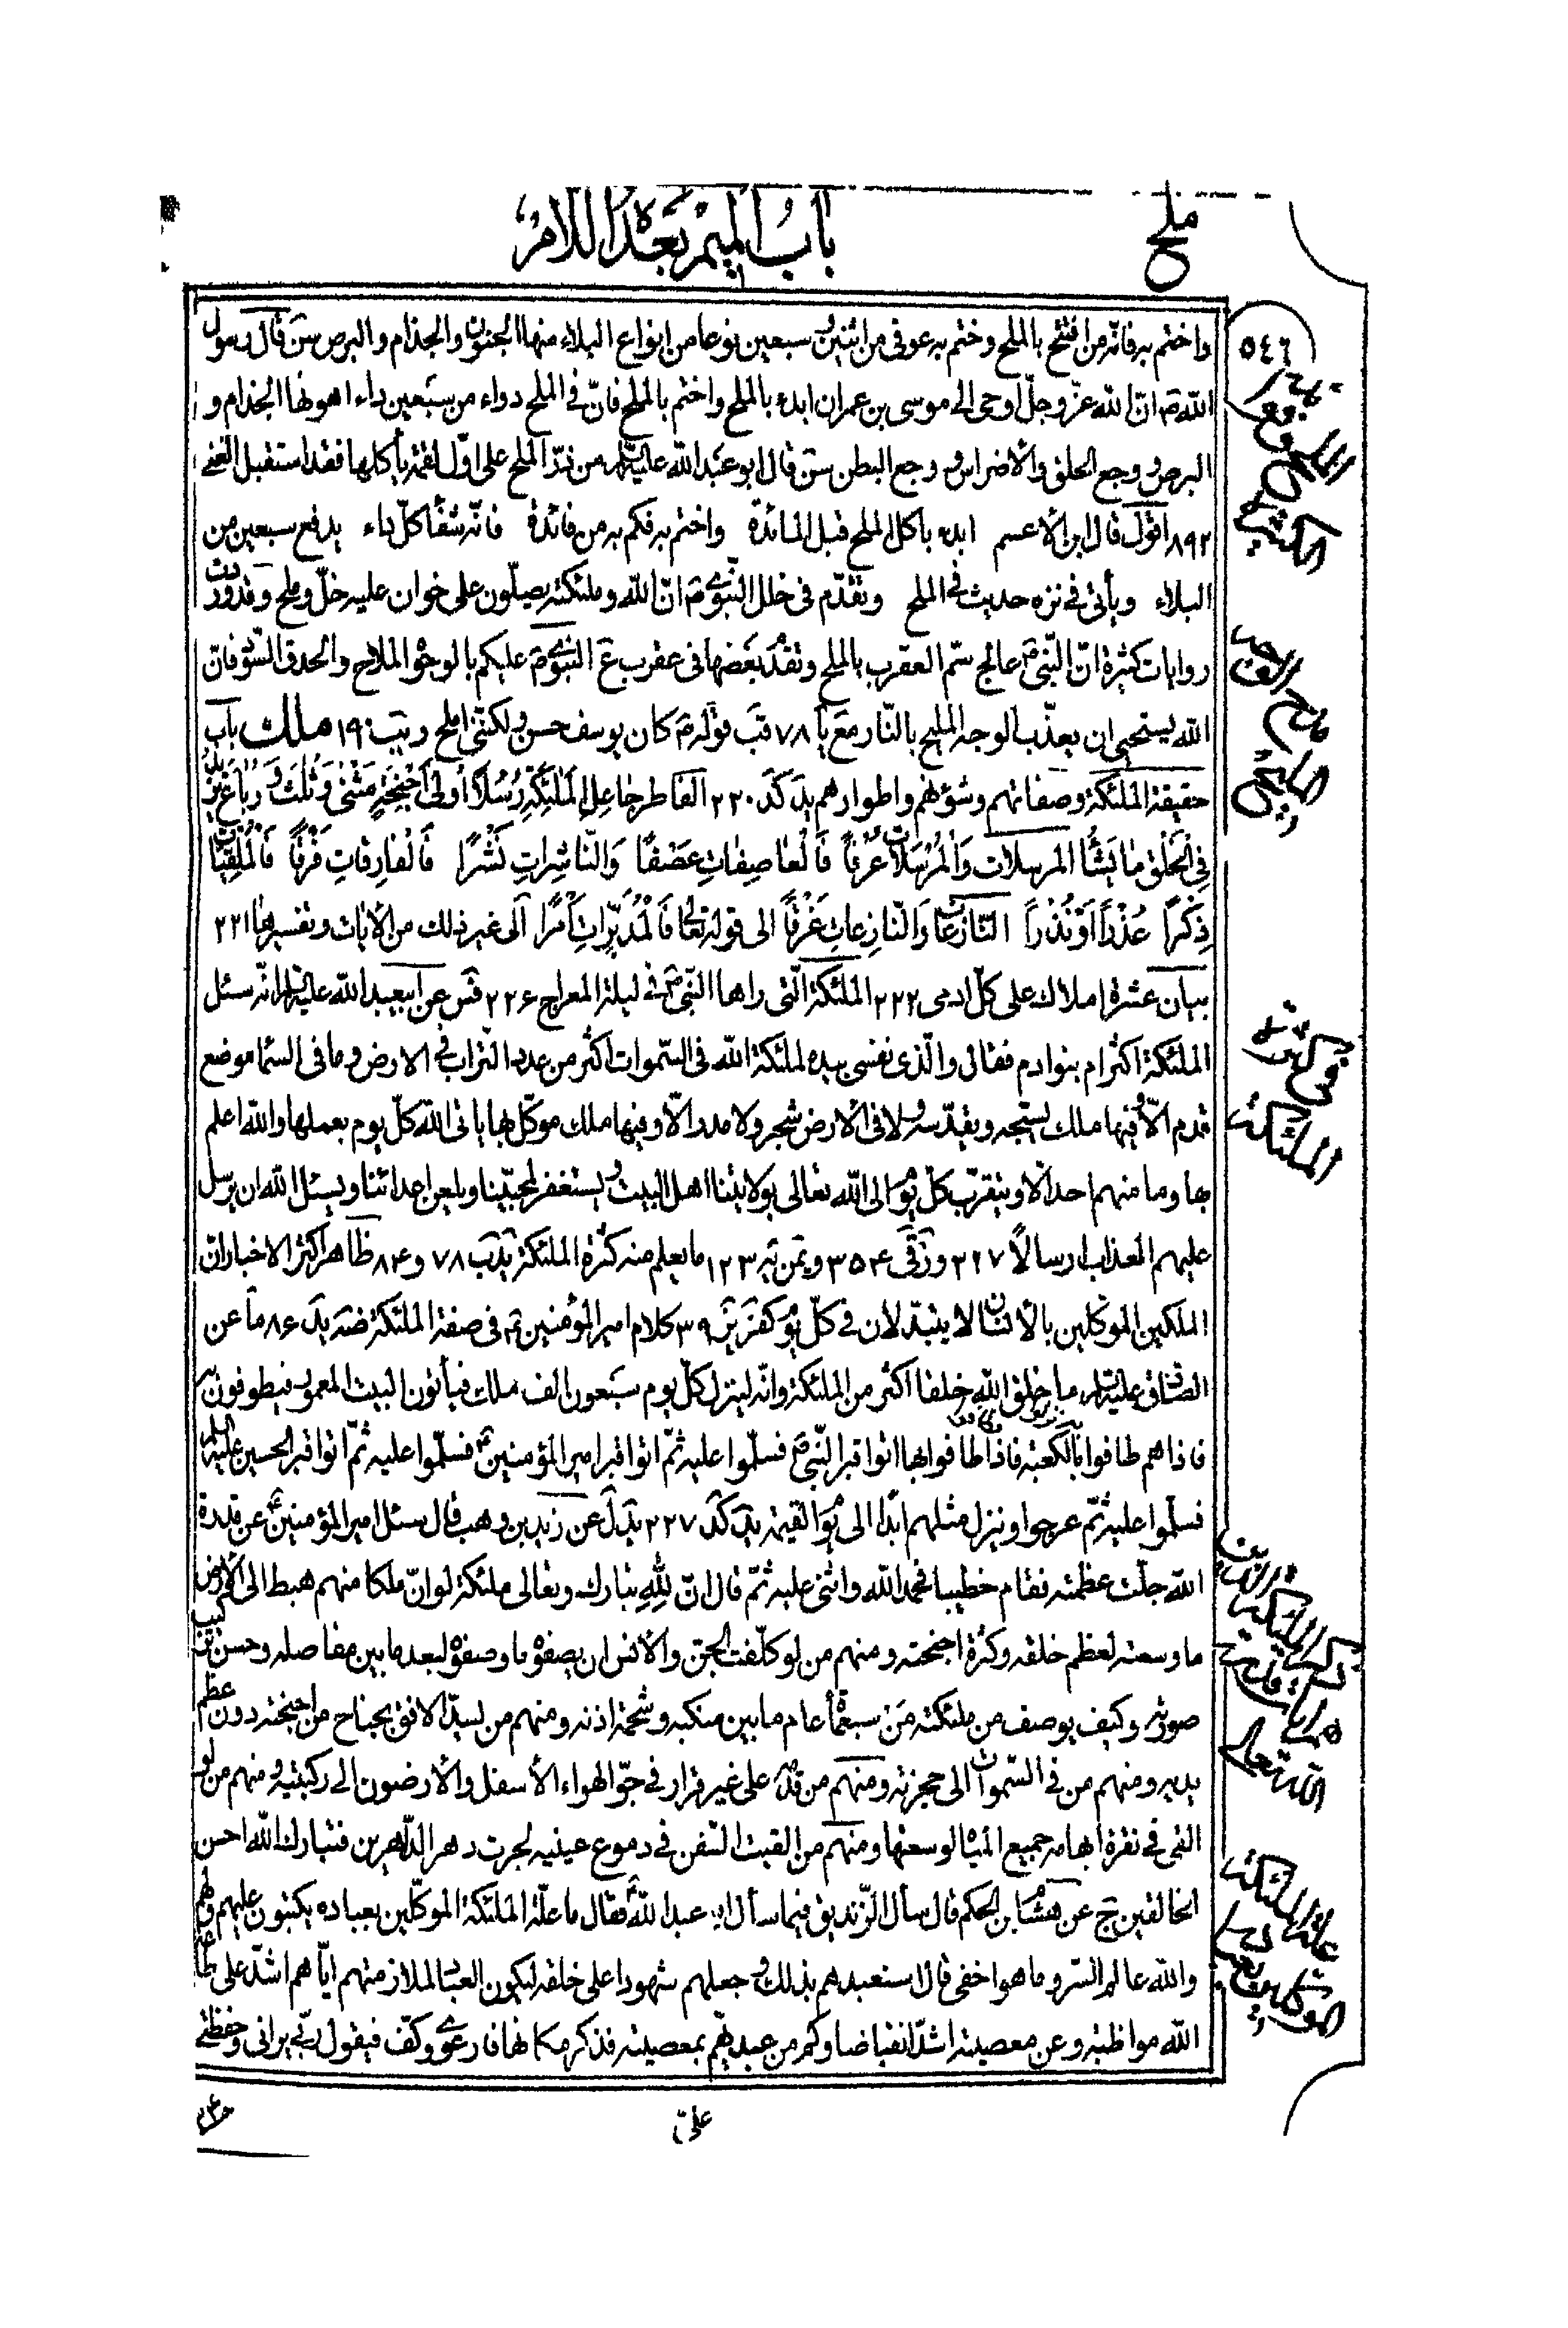 ملح
باب الميم بعد اللام
٥٤٦
واختم به فانّه من افتتح بالملح وختم به عوفى من اثنين وسبعين نوعا من انواع البلاء منها الجنون والجذام والبرص سن قال رسول
الله ص انّ الله عزّ وجلّ اوحى الى موسى بن عمران ابدء بالملح واختم بالملح فانّ فى الملح دواء من سبعين داء اهونها الجذام و
البرص ووجع الحلق والأضراس ووجع البطن سن قال ابو عبد الله عليه السلام من ذرّ الملح على اوّل لقمة يأكلها فقد استقبل الغنى
٨٩٢ اقول قال ابن الأعسم ابدء باكل الملح قبل المائدة واختم به فكم به من فائدة فانّه شفا كلّ داء يدفع سبعين من
البلاء ويأتى فى نزه حديث فى الملح وتقدّم فى خلل النّبوى ص انّ الله وملئكته يصلّون على خوان عليه خلّ وملح وقد وردت
روايات كثيرة انّ النّبى ص عالج سمّ العقرب بالملح وتقدّم بعضها فى عقرب ع النبوى ص عليكم بالوجوه الملاح والحدق السّود فانّ
الله يستحيى ان يعذّب الوجه المليح بالنّار مع يا ٧٨ قب قوله ص كان يوسف حسن ولكنّنى املح ١٩ ملك باب
حقيقة الملئكة وصفاتهم وشؤنهم واطوارهم يد كد ٢٢٠ الفاطر جاعل الملئكة رسلا أولى أجنحة مثنى وثلث ورباع يزيد
فى الخلق ما يشا المرسلات والمرسلات عرفا فالعاصفات عصفا والنّاشرات نشرا فالفارقات فرقا فالملقيات
ذكرا عذرا أو نذرا النّازعات والنّازعات غرقا الى قوله تعالى فالمدبّرات أمرا الى غير ذلك من الأيات وتفسيرها ٢٢١
بيان عشرة املاك على كلّ ادمى ٢٢٢ الملئكة الّتى راها النّبى ص فى ليلة المعراج ٢٢٦ فس عن ابيعبد الله عليه السلام انّه سئل
الملئكة اكثر ام بنوادم فقال والّذى نفسى بيده لملئكة الله فى السّموات اكثر من عدد التّراب فى الارض وما فى السّما موضع
قدم الّا وفيها ملك يسبّحه ويقدّسه ولا فى الأرض شجر ولا مدر الّا وفيها ملك موكّل بها ياتى الله كلّ يوم بعملها والله اعلم
بها وما منهم احد الّا ويتقرّب كلّ يوم الى الله تعالى بولايتنا اهل البيت ويستغفر لمحبّينا ويلعن اعدائنا ويسئل الله ان يرسل
عليهم العذاب ارسالًا ٣٥٤ ١٢٣ ما يعلم منه كثرة الملئكة ٧٨ و ٨٤ ظاهر اكثر الاخبار انّ
الملكين الموكّلين بالأنسان لا يتبدّلان فى كلّ يوم ٣٩ كلام امير المؤمنين ع فى صفة الملئكة ٨٦ ما عن
الصّادق عليه السلام ما خلق الله خلقا اكثر من الملئكة وانّه لينزل كلّ يوم سبعون الف ملك فيأتون البيت المعمور فيطوفون به
فاذا هم طافوا به نزلوا فطافوا بالكعبة فاذا طافوا بها اتوا قبر النّبى ص فسلّموا عليه ثمّ اتوا قبر امير المؤمنين ع فسلّموا عليه ثمّ اتوا قبر الحسين عليه السلام
فسلّموا عليه ثمّ عرجوا وينزل مثلهم ابدا الى يوم القيمة يد كد ٢٢٧ يد ل عن زيد بن وهب قال سئل امير المؤمنين ع عن قدرة
الله جلّت عظمته فقام خطيبا فحمد الله واثنى عليه ثمّ قال انّ لله تبارك وتعالى ملئكة لو انّ ملكا منهم هبط الى الأرض
ما وسعته لعظم خلقه وكثرة اجنحته ومنهم من لو كلّفت الجنّ والأنس ان يصفوه ما وصفوه لبعد ما بين مفاصله وحسن تركيب
صورته وكيف يوصف من ملئكته من سبعمأة عام ما بين منكبه وشحمة اذنه ومنهم من يسدّ الافق بجناح من اجنحته دون عظم
يديه ومنهم من فى السّموات الى حجزته ومنهم من قدمه على غير قرار فى جوّ الهواء الأسفل والأرضون الى ركبتيه ومنهم من لو
القى فى نقرة ابهامه جميع المياه لوسعتها ومنهم من لو القيت السّفن فى دموع عينيه لجرت دهر الدّاهرين فتبارك الله احسن
الخالقين ج عن هشام بن الحكم قال سأل الزّنديق فيما سأل ابا عبد الله ع فقال ما علّة الملئكة الموكّلين بعباده يكتبون عليهم ولهم
والله عالم السّر وما هو اخفى قال استعبدهم بذلك وجعلهم شهودا على خلقه ليكون العباد لملازمتهم ايّاهم اشدّ على طاعة
الله مواظبة وعن معصيته اشدّ انقباضا وكم من عبد يهمّ بمعصيته فذكر مكانها فارعوى وكفّ فيقول ربّى يرانى وحفظتى
علىّ
فى كثرة
الملئكة